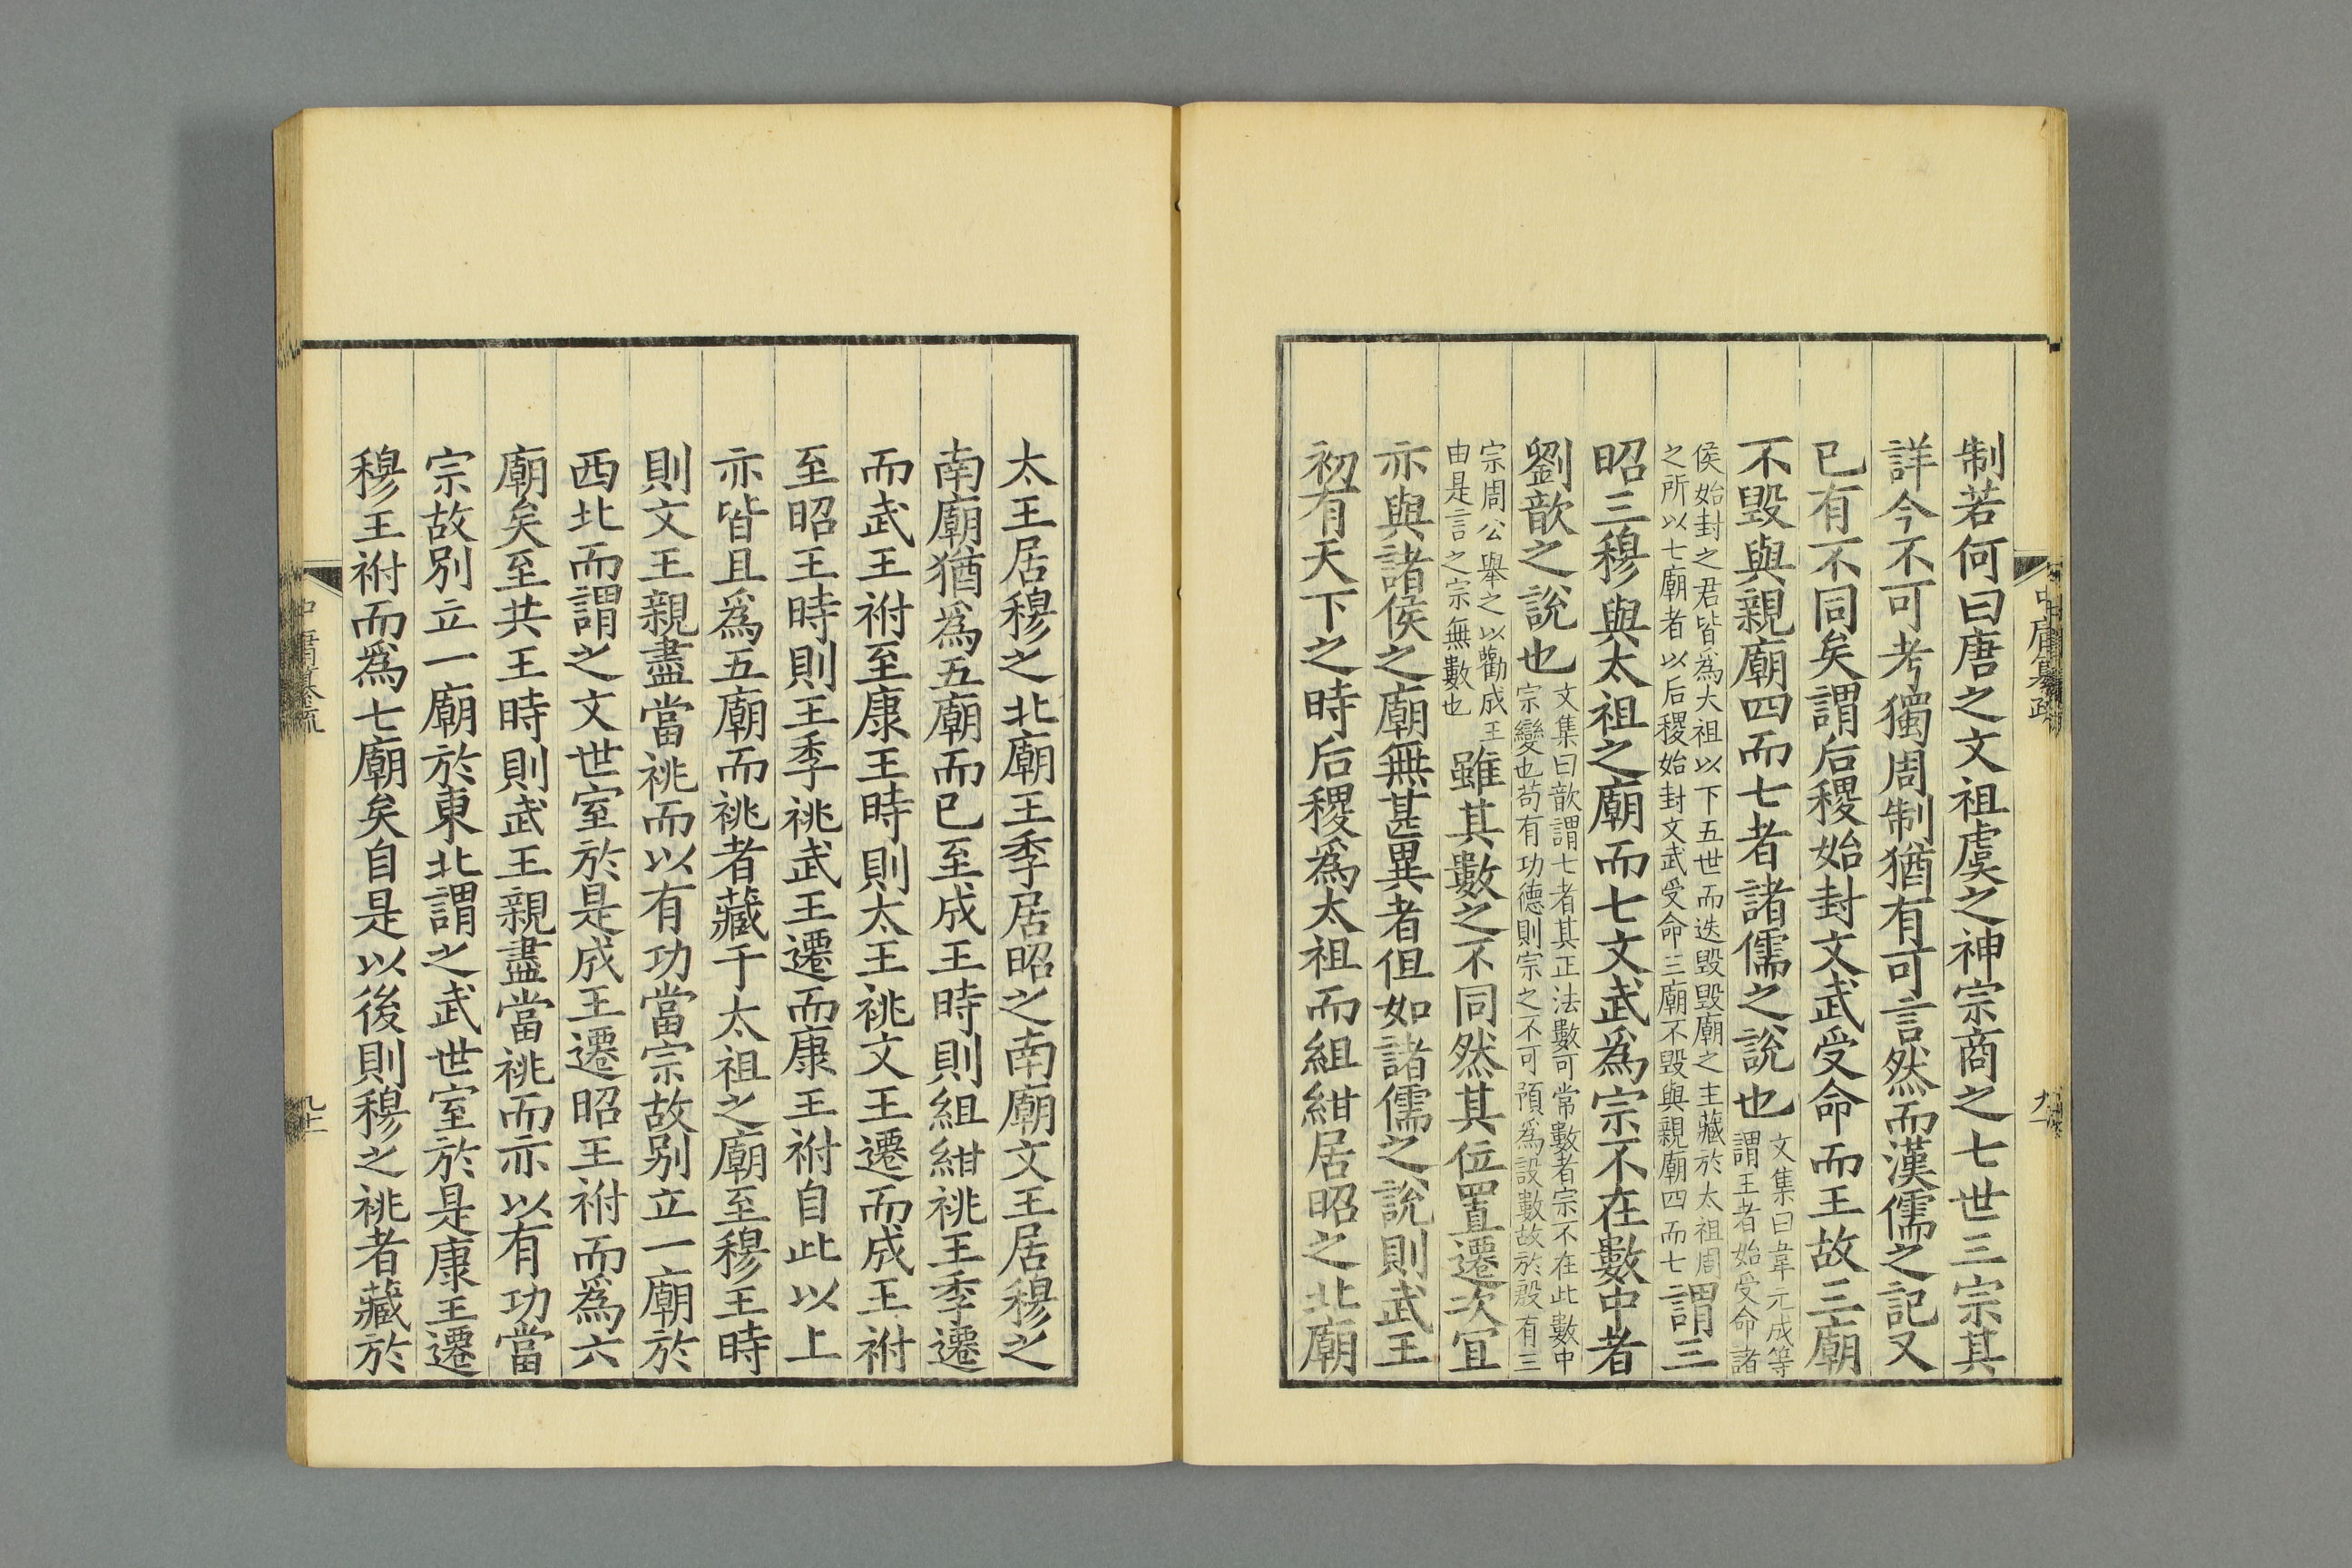 制若何曰唐之文祖虞之神宗商之七世三宗其
詳今不可考獨周制猶有可言然而漢儒之記又
已有不同矣謂后稷始封文武受命而王故三廟
不毀與親廟四而七者諸儒之說也文集曰韋元成等
謂王者始受命諸
侯始封之君皆爲大祖以下五世而迭毀毀廟之主藏於太祖周
之所以七廟者以后稷始封文武受命三廟不毀與親廟四而七謂三
昭三穆與太祖之廟而七文武爲宗不在數中者
劉歆之說也文集曰歆謂七者其正法數可常數者宗不在此數中
宗變也苟有功德則宗之不可預爲設數故於殷有三
宗周公舉之以勸成王
由是言之宗無數也雖其數之不同然其位置遷次宜
亦與諸侯之廟無甚異者但如諸儒之說則武王
初有天下之時后稷爲太祖而組紺居昭之北廟
太王居穆之北廟王季居昭之南廟文王居穆之
南廟猶爲五廟而已至成王時則組紺祧王季遷
而武王祔至康王時則太王祧文王遷而成王祔
至昭王時則王季祧武王遷而康王祔自此以上
亦皆且爲五廟而祧者藏于太祖之廟至穆王時
則文王親盡當祧而以有功當宗故別立一廟於
西北而謂之文世室於是成王遷昭王祔而爲六
廟矣至共王時則武王親盡當祧而亦以有功當
宗故別立一廟於東北謂之武世室於是康王遷
穆王祔而爲七廟矣自是以後則穆之祧者藏於